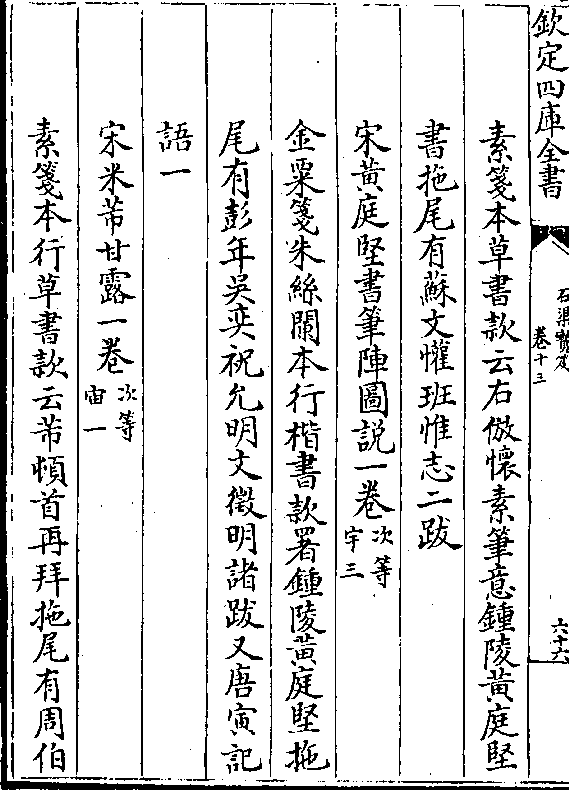 欽定四庫全書
石渠寳笈
卷十三
六十六
素箋本草書款云右倣懷素筆意鍾陵黄庭堅
書拖尾有蘇文懽班惟志二跋
宋黄庭堅書筆陣圖說一卷次等宇三
金粟箋朱絲闌本行楷書款署鍾陵黄庭堅拖
尾有彭年吳奕祝允明文徵明諸跋又唐寅記
語一
宋米芾甘露一卷次等宙一
素箋本行草書款云芾頓首再拜拖尾有周伯